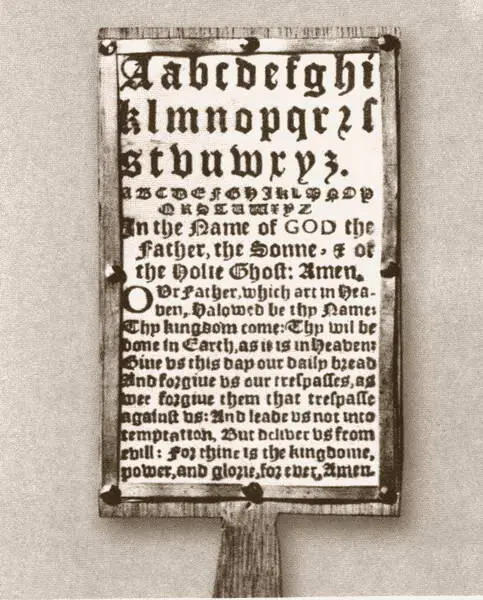 Aabcdefghi
klmnopqrꝛſ
stvuwxyz.
ABCDEFGHIKLMNOP
QRSTUWXYZ
In the Name of GOD the
Father, the Sonne, & of
the Holie Ghost: Amen.
OUr Father, which art in Hea-
ven, Halowed be thy Name:
Thy kingdom come: Thy wil be
done in Earth, as it is in Heaven:
Giue vs this day our daily bread
And forgiue vs our trespasses, as
wee forgiue them that trespasse
against vs: And leade vs not into
temptation, But deliver vs from
evill: For thine is the kingdome,
power, and glorie, for ever, Amen.